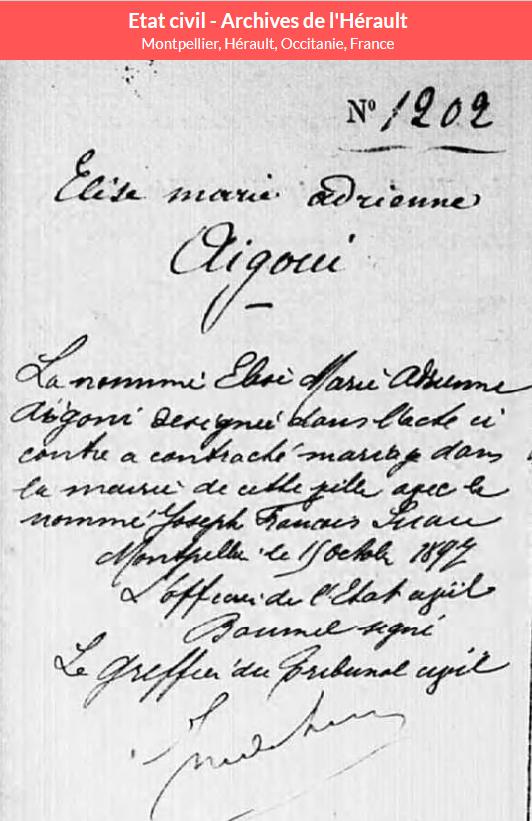 Etat civil - Archives de l'Hérault
Montpellier, Hérault, Occitanie, France
Nº 1202
Elise marie adrienne
Aigoui
La nommé Elise Marie Adrienne
Aigoui designée dans l'acte ci
contre a contracté mariage dans
la mairie de cette ville avec le
nommé Joseph Francois
Montpellier le 15 octobre 1897
L'officier de l'Etat civil
Baumel signé
Le Greffier du Tribunal civil